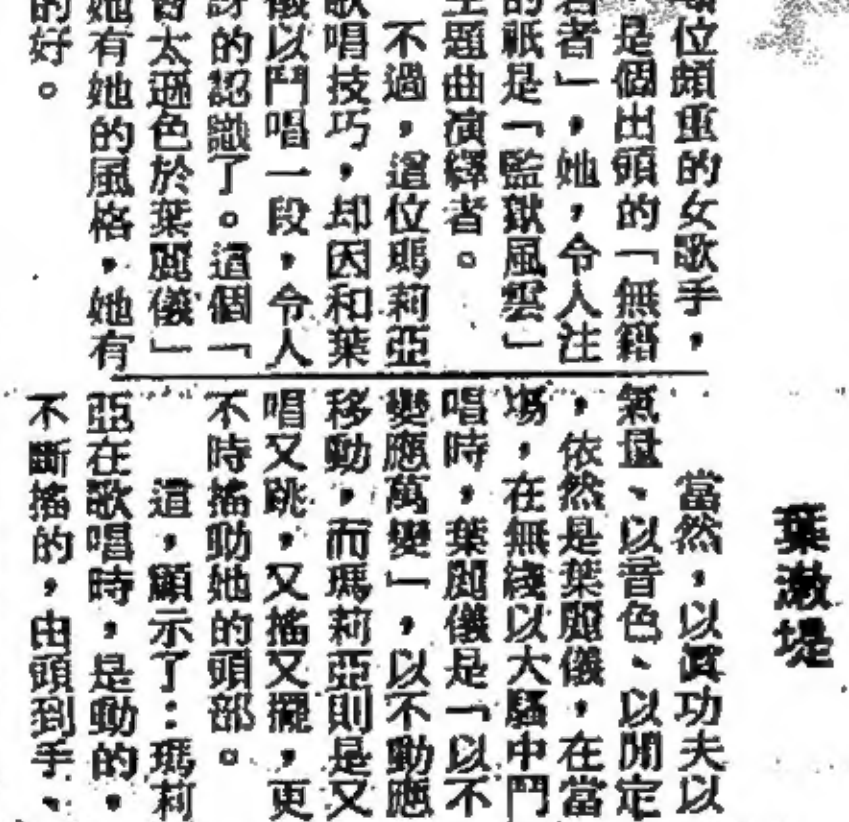 葉激堤
位頗重的女歌手，
是個出頭的「無籍
者」，她，令人注
的祇是「監獄風雲」
主題曲演繹者。
不過，這位瑪莉亞
歌唱技巧，却因和葉
儀以鬥唱一段，令人
訝的認識了。這個「
會太遜色於葉麗儀」
她有她的風格，她有
的好。
當然，以真功夫以
氣量、以音色、以閒定
，依然是葉麗儀，在當
場，在無綫以大騷中鬥
唱時，葉麗儀是「以不
變應萬變」，以不動應
移動，而瑪莉亞則是又
唱又跳，又搖又擺，更
不時搖動她的頭部。
這，顯示了：瑪莉
亞在歌唱時，是動的，
不斷搖的，由頭到手、